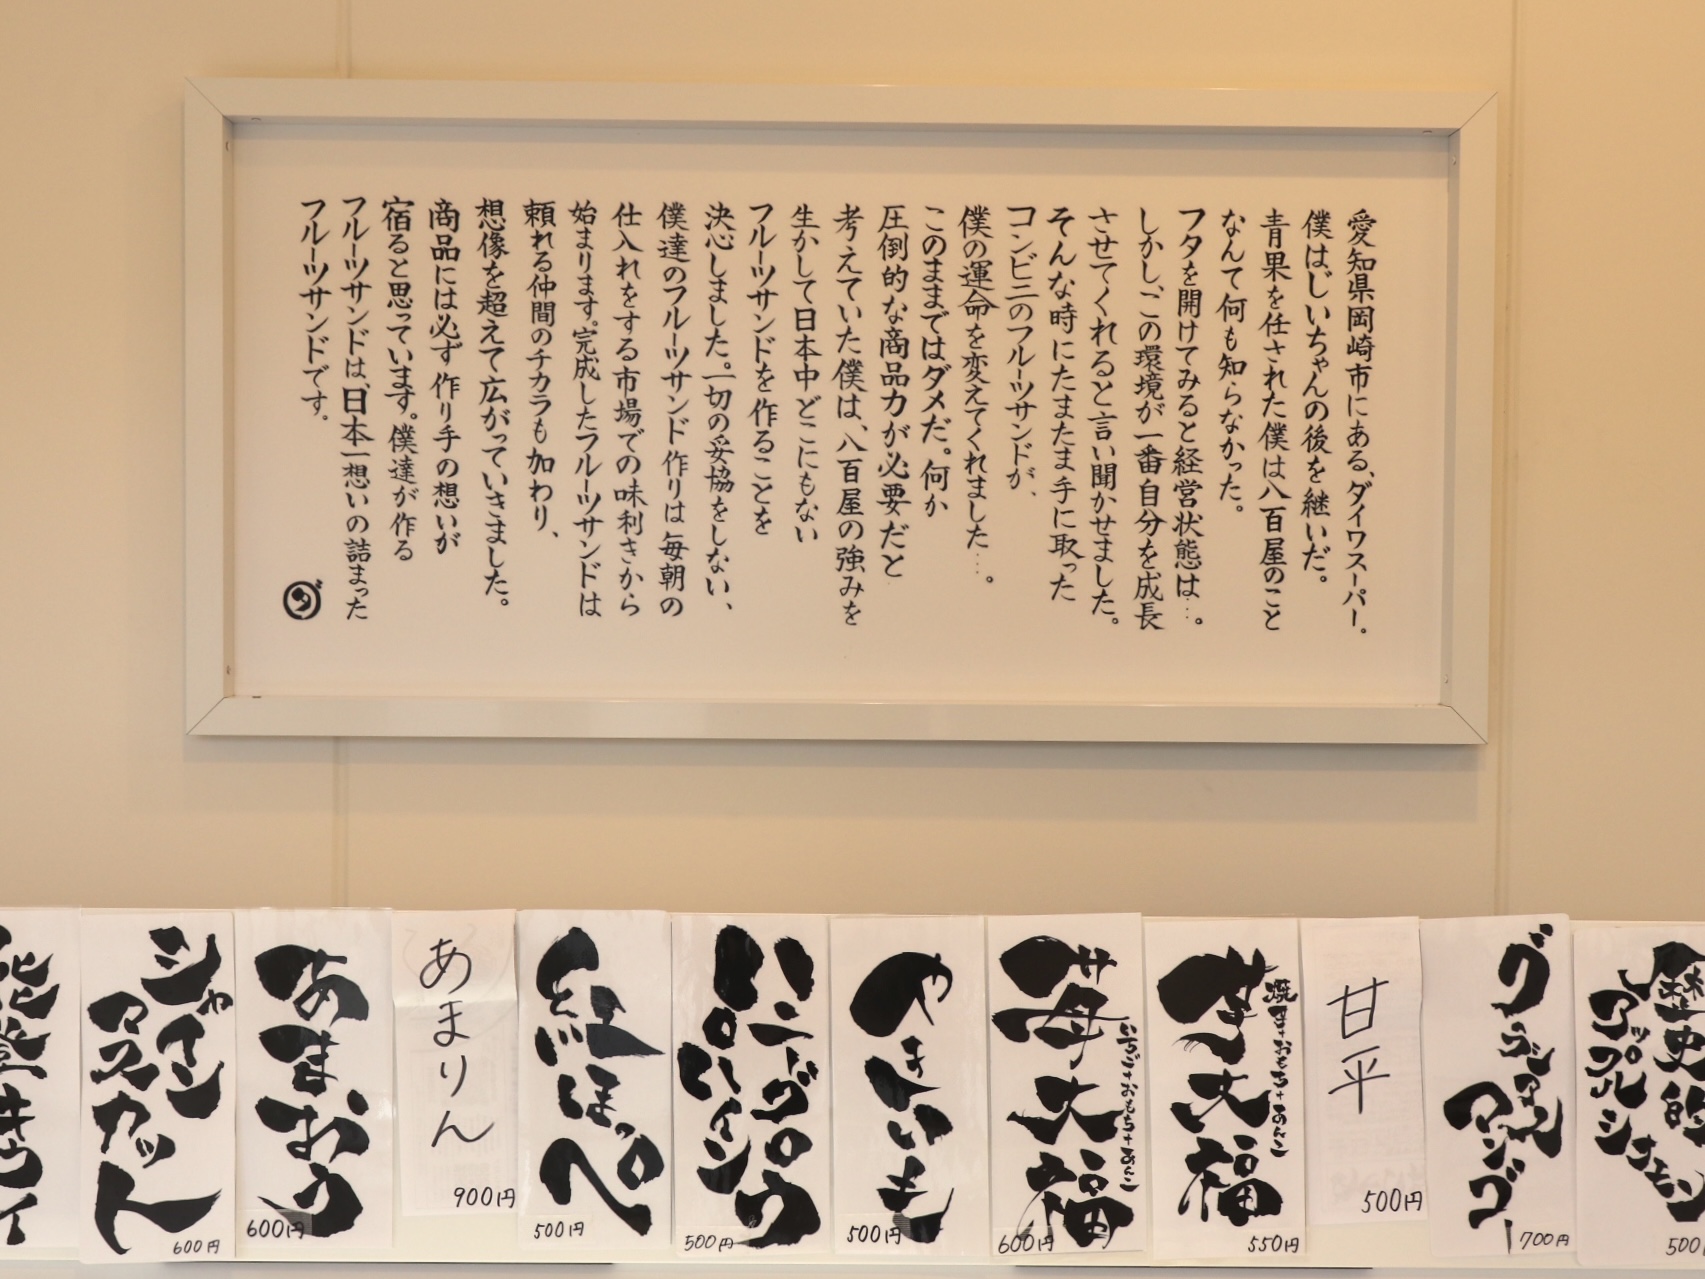 愛知県岡崎市にある、ダイワスーパー。
僕はじいちゃんの後を継いだ。
青果を任された僕は八百屋のこと
なんて何も知らなかった。
フタを開けてみると経営状態は…。
しかし、この環境が一番自分を成長
させてくれると言い聞かせました。
そんな時にたまたま手に取った
コンビニのフルーツサンドが、
僕の運命を変えてくれました…。
このままではダメだ。何か
圧倒的な商品力が必要だと
考えていた僕は、八百屋の強みを
生かして日本中どこにもない
フルーツサンドを作ることを
決心しました。一切の妥協をしない、
僕達のフルーツサンド作りは毎朝の
仕入れをする市場での味利きから
始まります。完成したフルーツサンドは
頼れる仲間のチカラも加わり、
想像を超えて広がっていきました。
商品には必ず作り手の想いが
宿ると思っています。僕達が作る
フルーツサンドは、日本一想いの詰まった
フルーツサンドです。
歴史的
アップルシナモン
500
グラシアス
マンゴー
700円
甘平
500円
芋大福
焼芋+おもち+あんこ
550円
苺大福
いちご+おもち+あんこ
600円
やきいも
500円
ハニーグロウ
パイン
500円
紅ほっぺ
500円
あまりん
900円
あまおう
600円
シャイン
マスカット
600円
能登キウイ